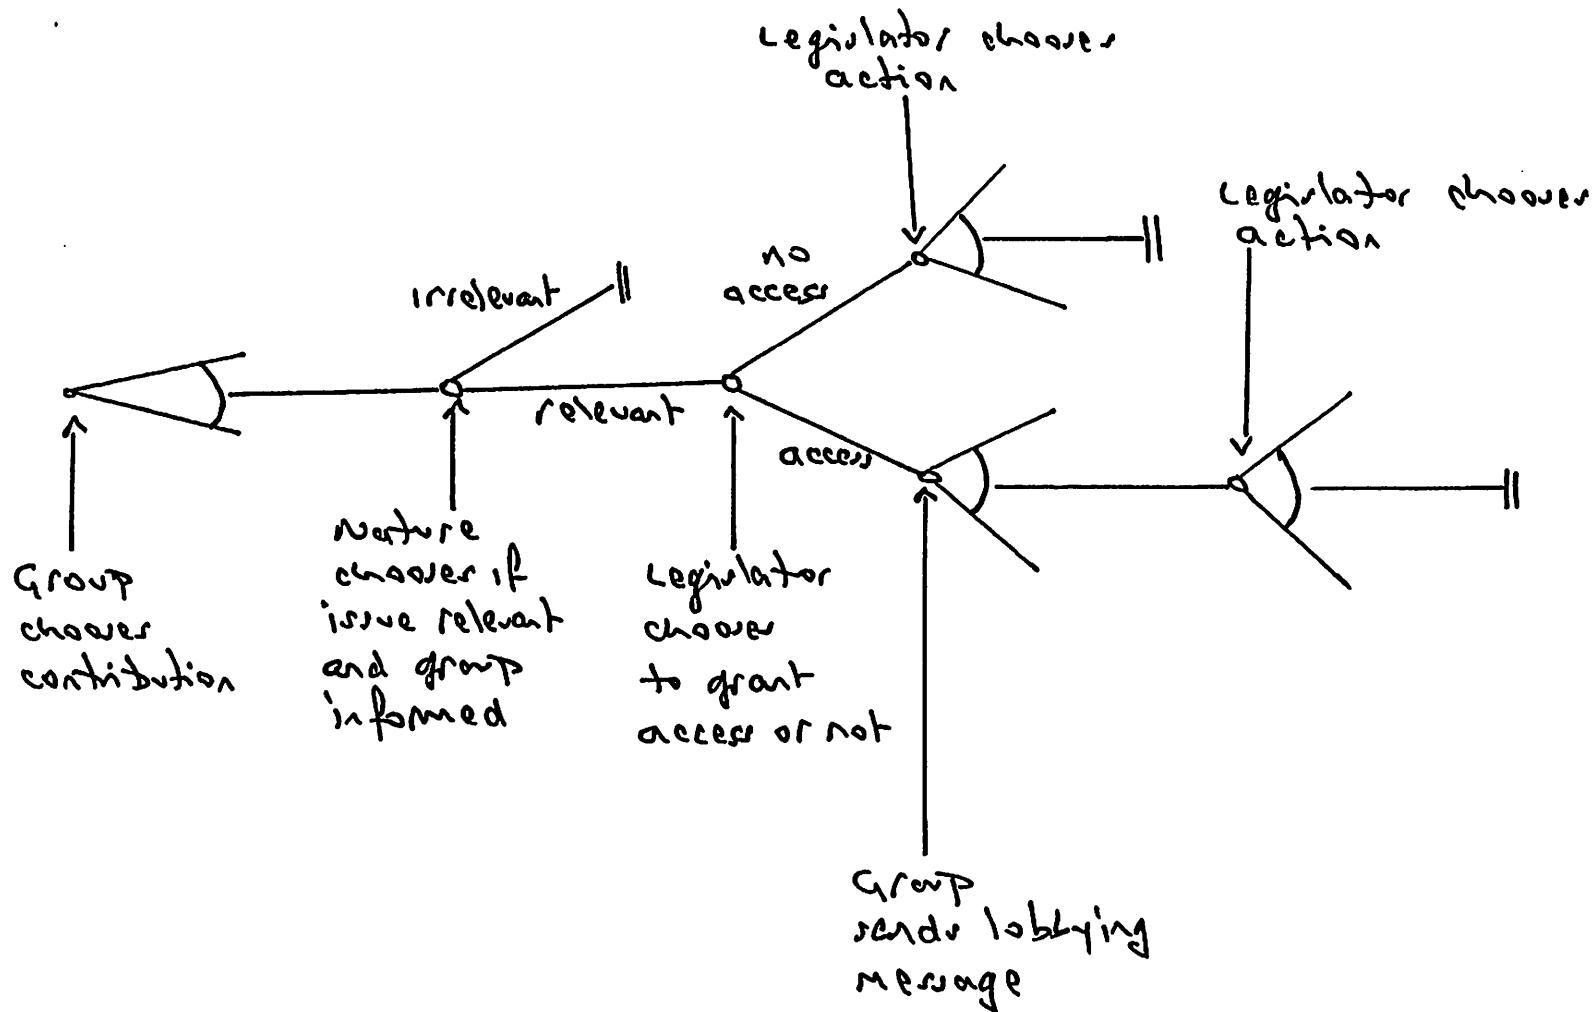 Legislator chooses
action
Legislator chooses
action
no
access
irrelevant
relevant
access
Group
chooses
contribution
Nature
chooses if
issue relevant
and group
informed
Legislator
chooses
to grant
access or not
Group
sends lobbying
message